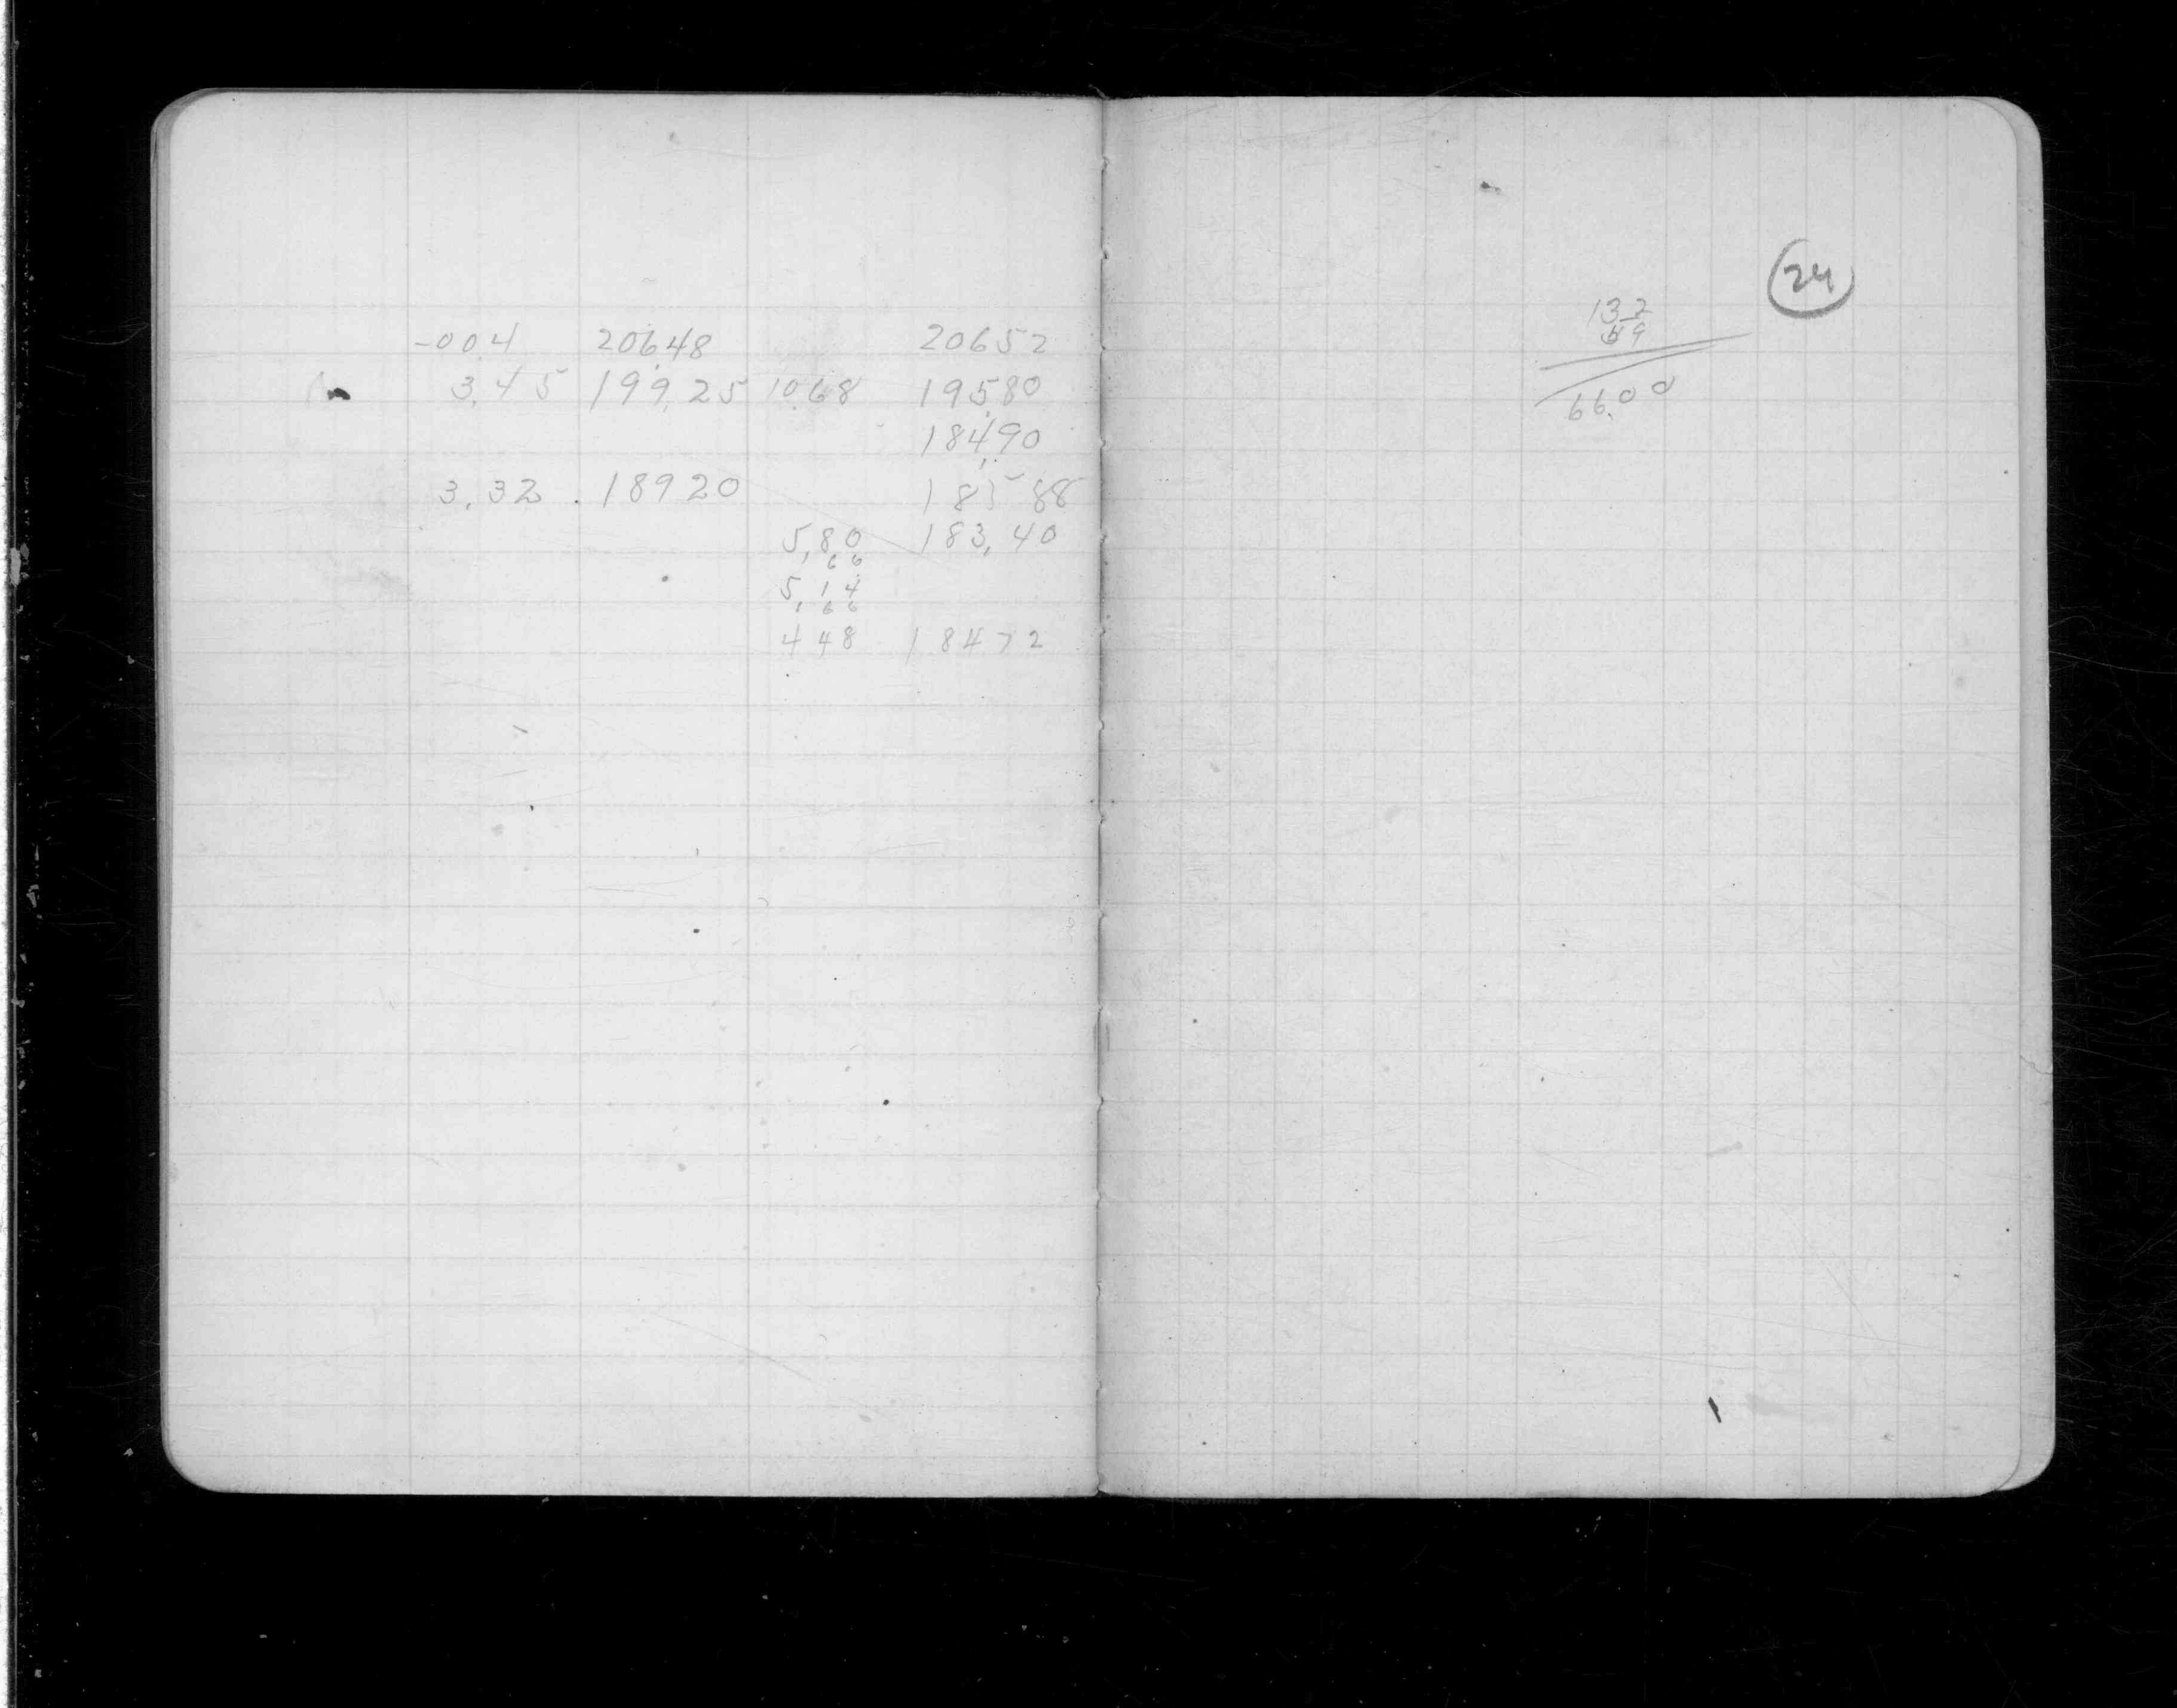 -004 20648 20652
3.45 199.25 10.68 195.80
184.90
3.32 . 18920 185 88
5.80 183.40
66
5.14
66
448 18472
24
132
49
66.00